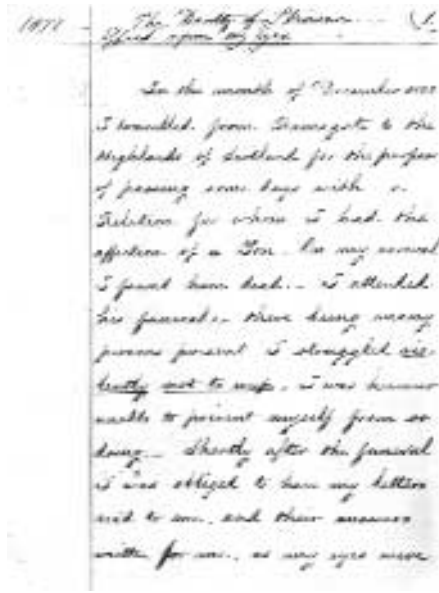 upon my Eyes
In the month of December 1822
I travelled from Ramsgate to the
Highlands of Scotland for the purpose
of passing some days with a
Relation for whom I had the
affection of a Son. On my arrival
I found him dead. I attended
his funeral. there being many
persons present I struggled vio-
lently not to weep. I was however
unable to prevent myself from so
doing. Shortly after the funeral
I was obliged to have my letters
read to me, and their answers
written for me, as my eyes were